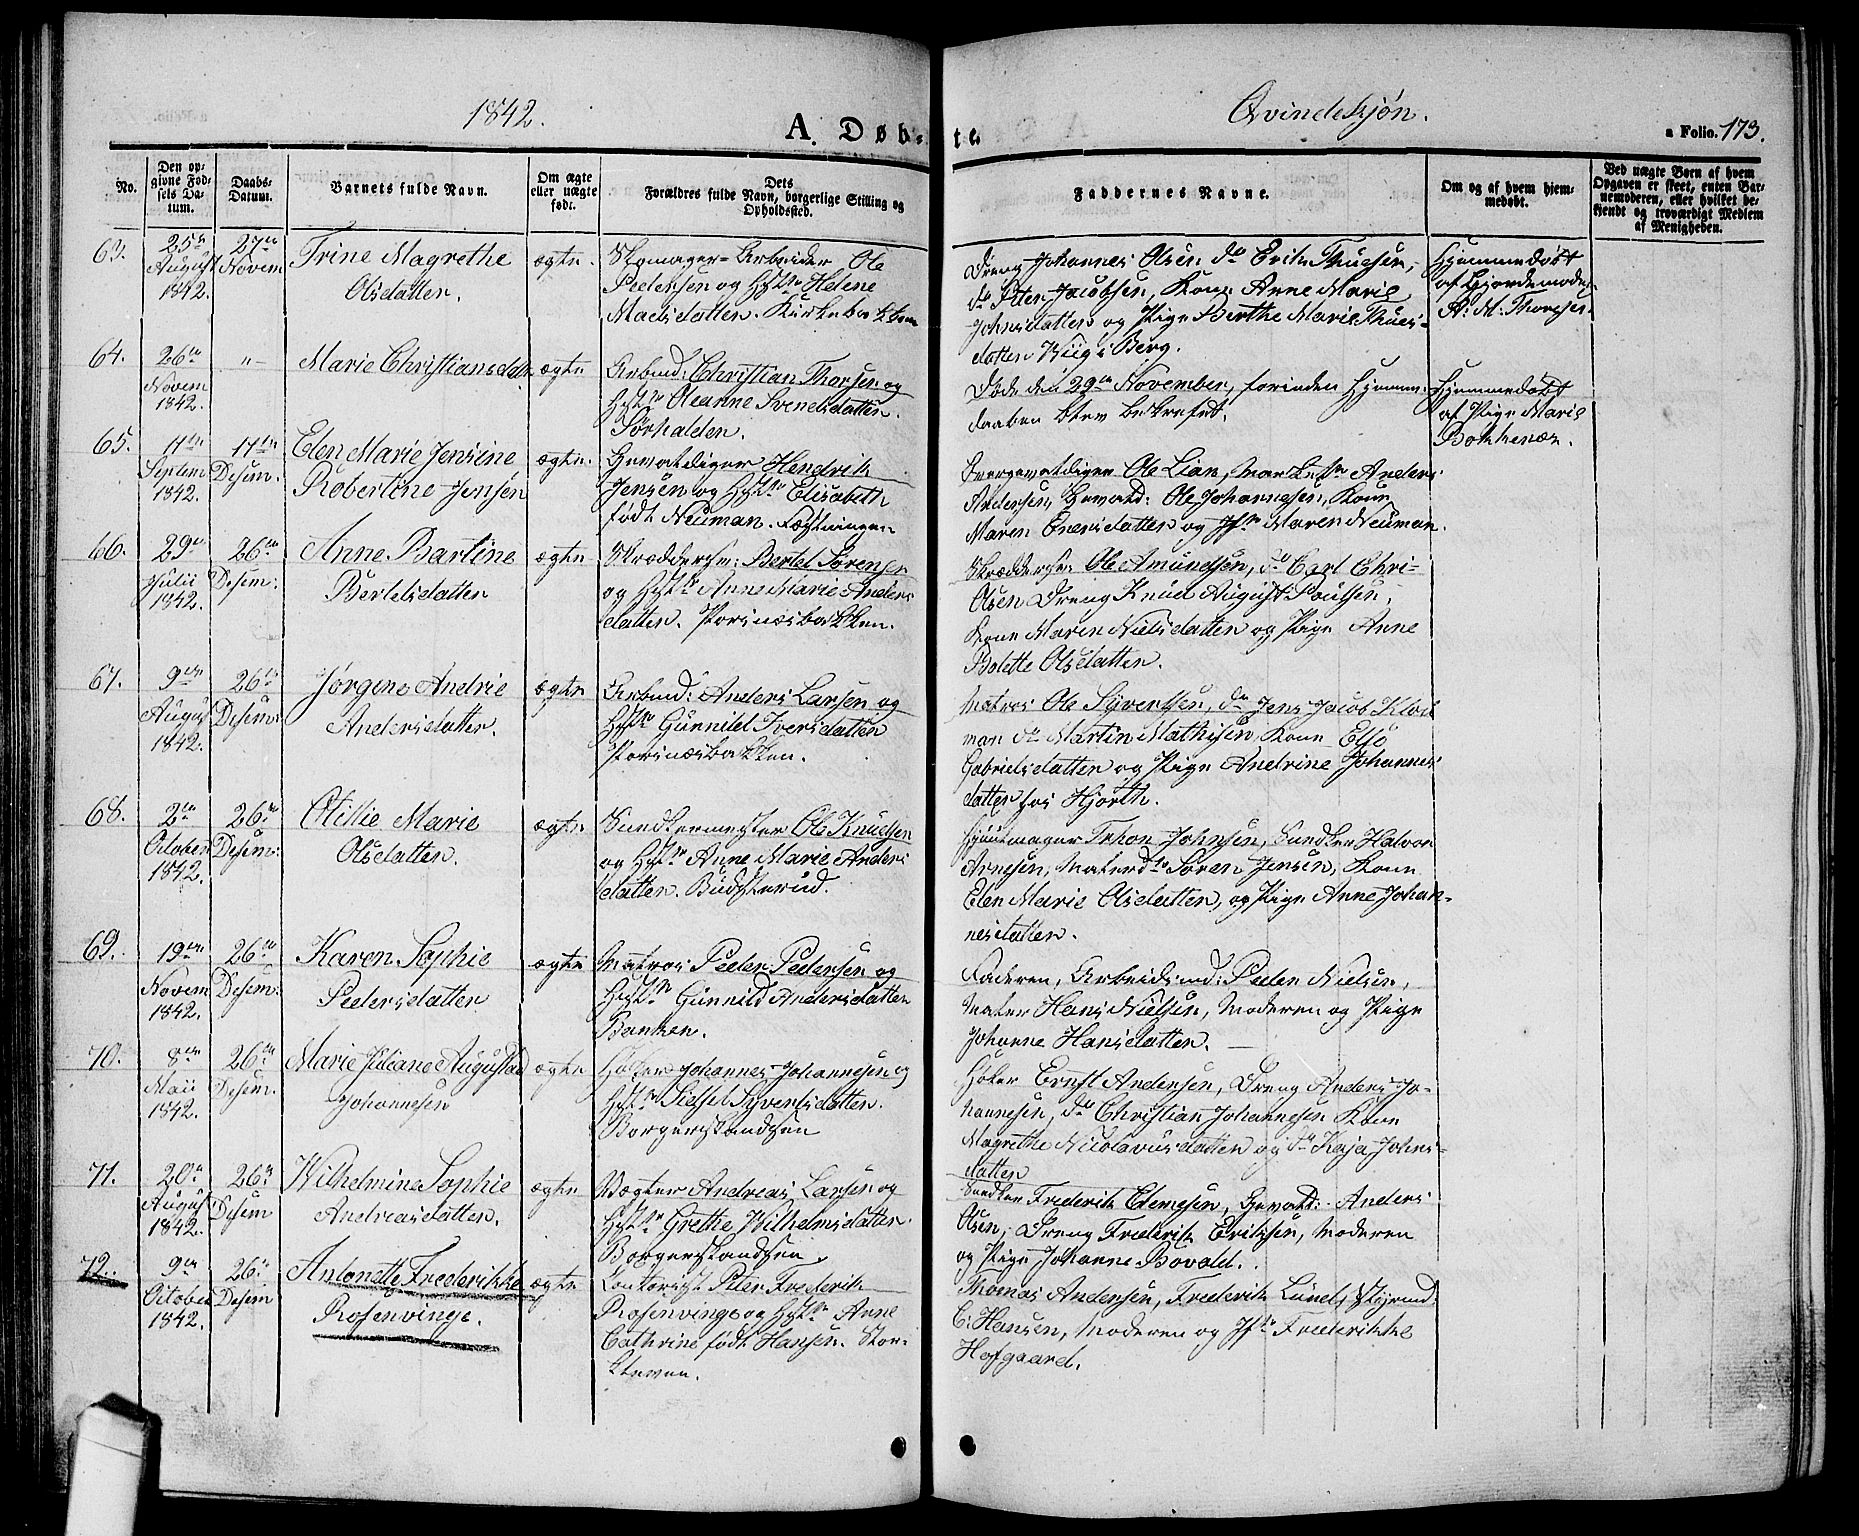 1842.
A. Døb-
te.
Qvindekjøn.
a Folio. 173.
No.
Den op-
givne Fød-
sels Da-
tum.
Daabs-
Datum.
Barnets fulde Navn.
Om ægte
eller uægte
født.
Dets
Forældres fulde Navn, borgerlige Stilling og
Opholdssted.
Faddernes Navne.
Om og af hvem hjem-
medøbt.
Ved uægte Børn af hvem
Opgaven er skeet, enten Bar-
nemoderen, eller hvilket be-
kjendt og troværdigt Medlem
af Menigheden.
63.
25de
August
1842.
27de
Novem
Trine Magrethe
Olsdatter.
ægte.
Skomager-Arbeider Ole
Pedersen og Hst. Helene
Madsdatter. Kirkebakken
Dreng Johannes Olsen do Erik Thuesen,
do Peter Jacobsen, Kone Anne Marie
Johnsdatter og Pige Berthe Marie Thues-
datter Wiig i Berg.
Hjemmedøbt
af Gjordemoder
A. M. Thorsen.
64.
26de
Novem
1842.
"-
Marie Christiansdatr
ægte
Arbmd: Christian Thorsen og
Hst. Oleanne Svendsdatter.
Sørhalden.
Døde den 29de November, forinden Hjemme-
daaben blev bekræftet.
Hjemmedøbt
af Pige Marie
Bokkenæs.
65.
11te
Septem
1842.
11te
Desem.
Elen Marie Jensine
Robertine Jensen
ægte.
Gevaldiger Hendrik
Jensen og Hst. Elisabeth
født Neuman. Fæstningen
Overgevaldiger Ole Lian, Anders
Andersen, Gevald: Ole Johannesen, Kone
Maren Enersdatter og Jfr Maren Neuman.
66.
29de
Julii
1842.
26de
Desem:
Anne Bartine
Bertelsdatter
ægte
Skrædderm: Bertel Sørensen
og Hst. Anne Marie Anders
datter. Porsnæsbakken.
Skrædderm: Ole Amundsen, do Carl Chri-
Olsen Dreng Knud August Poulsen,
Kone Maren Nielsdatter og Pige Anne
Bolette Olsdatter.
67.
9de
Augus
1842.
26de
Desem:
Jørgine Andrie
Andersdatter.
ægte
Arbmd: Anders Larsen og
Hst. Gunnild Iversdatter
Porsnæsbakken.
Matros Ole Syvertsen, do Jens Jacob Klod
man do Martin Mathisen, Kone Else
Gabrielsdatter og Pige Andrine Johannes
datter hos Hjorth.
68.
2de
October
1842.
26de
Desem:
Otillie Marie
Olsdatter.
ægte
Snedkermester Ole Knudsen
og Hst. Anne Marie Anders
datter. Büdsterud.
Johnsen, Snedker Halvor
Arnesen, Søren Jensen, Kone
Elen Marie Olsdatter, og Pige Anne Johan-
nesdatter.
69.
19de
Novem
1842.
26de
Desem:
Karen Sophie
Pedersdatter
ægte
Matros Peder Pedersen og
Hst. Gunnild Andersdatter
Banken.
Faderen, Arbeidsmd: Peder Nielsen,
Hans Nielsen, Moderen og Pige
Johanne Hansdatter.
70.
8de
Maii
1842.
26de
Desem.
Marie Juliane Augusta
Johannesen
ægte
Høker Johannes Johannesen og
Hst. Sidsel Syvertsdatter.
Borgerskandsen
Høker Ernst Andersen, Dreng Anders Jo-
hannesen, do Christian Johannesen Kone
Magrethe Nicolavusdatter og do Kaja Johns-
datter
71.
20de
Augus
1842.
26de
Desem
Wilhelmine Sophie
Andreasdatter.
ægte
Vægter Andreas Larsen og
Hst. Grethe Wilhelmsdatter.
Borgerskandsen.
Snedker Frederik Clemesen, Gevald: Anders
Olsen, Dreng Frederik Eriksen, Moderen
og Pige Johanne Bovald.
72.
9de
October
1842.
26de
Desem
Antonette Frederikke
Rosenvinge.
ægte
Contorist Peter Frederik
Rosenvinge og Hst. Anne
Cathrine født Hansen. Stor-
kleven.
Thomas Andersen, Frederik Lund, Styrmd:
C. Hansen, Moderen og Jfr Frederikke
Hofgaard.